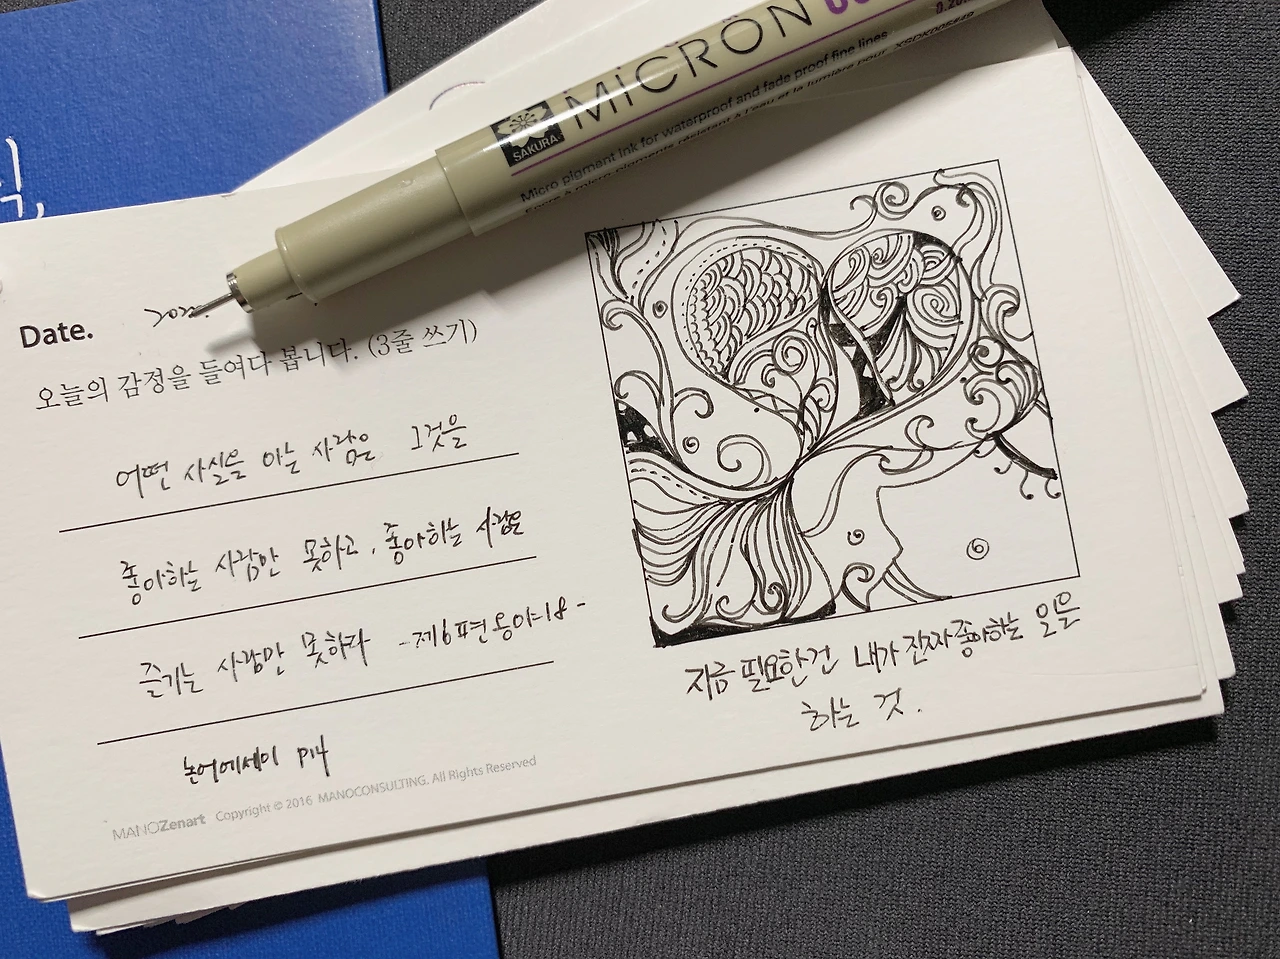 식,
MICRON
SAKURA
Micro pigment ink for waterproof and fade proof fine lines
XSDK005#49
Date.
오늘의 감정을 들여다 봅니다. (3줄 쓰기)
어떤 사실을 아는 사람은 그것을
좋아하는 사람만 못하고, 좋아하는 사람은
즐기는 사람만 못하다 -제6편 옹야-18-
논어에세이 P14
지금 필요한건 내가 진짜 좋아하는 일을
하는 것.
MANOZenart Copyright © 2016 MANOCONSULTING. All Rights Reserved